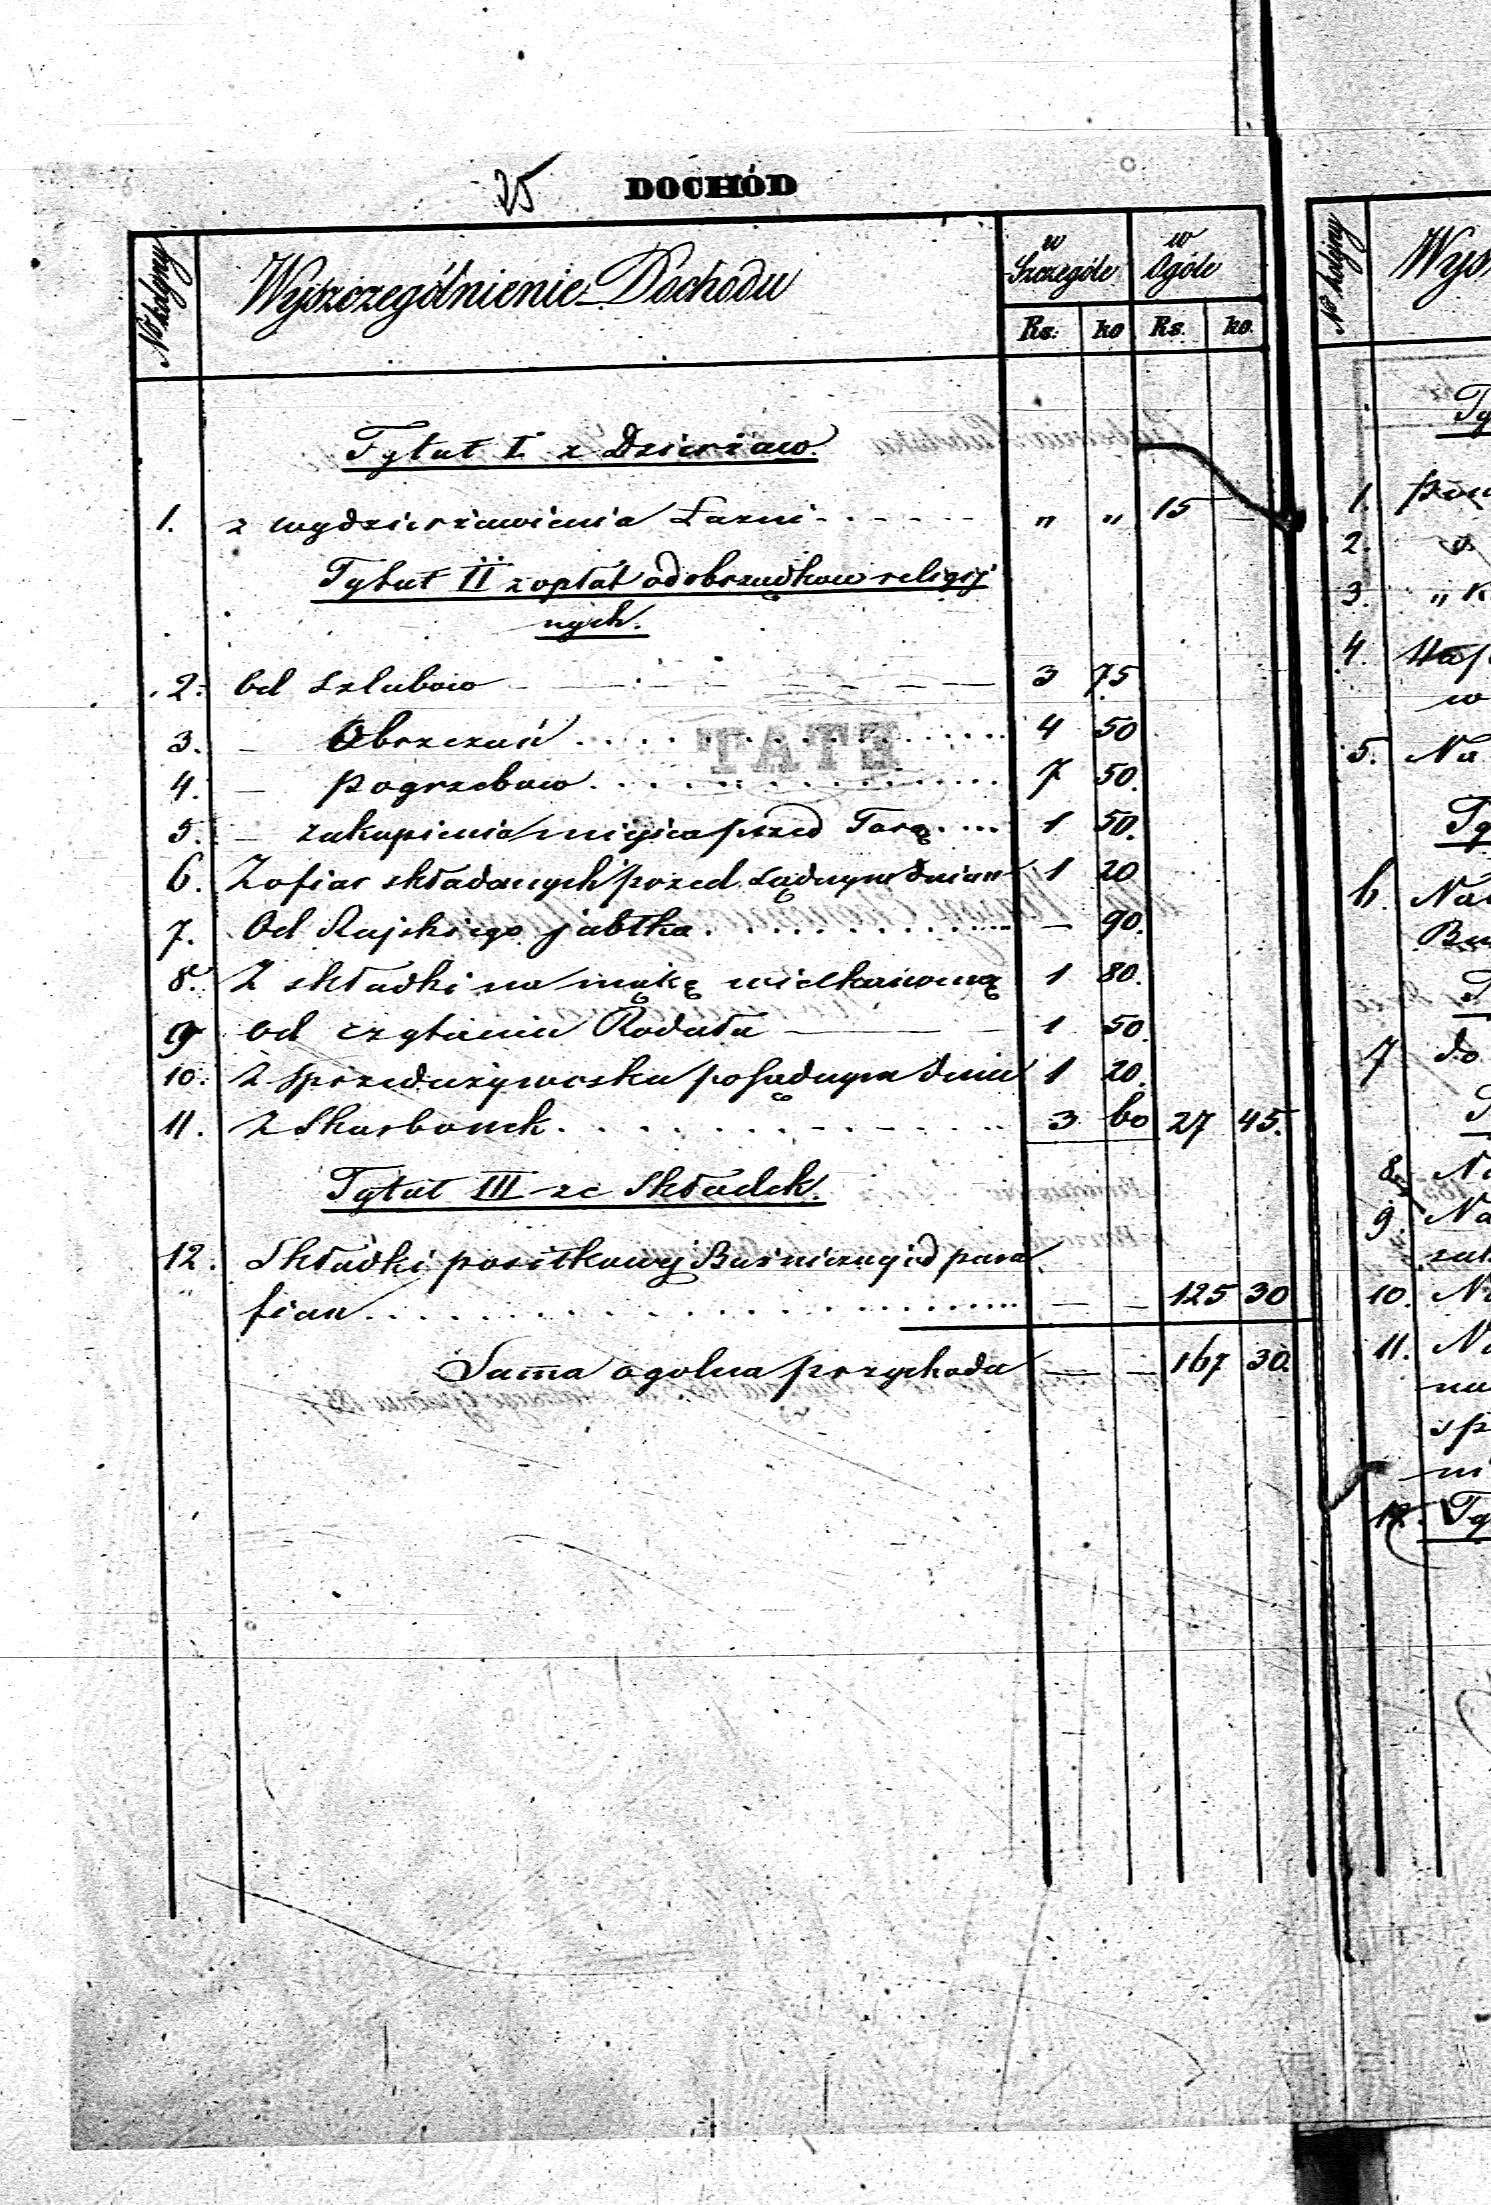 25 DOCHÓD
No kolejny
Wyszczególnienie Dochodu
w Szczególe
w Ogóle
Rs. ko Rs. ko.
Tytuł I z Dzierżaw.
1. z wydzierżawienia Łazni - - - - - " " 15 —
Tytuł II z opłat od obrzudkow religij
nych.
2. Od szlubow — — — — — 3 75
3. — Obrzezań . . . . . . . . . . 4 50
4. — pogrzebow . . . . . . . . . . 7 50.
5. — zakupienia miejsca przed Torą. . . . 1 50.
6. Z ofiar składanych przed Sądnym dniem 1 20
7. Od Rajskiego jabłka . . . . . . . . . — 90.
8. Z składki na mąkę wielkanocną 1 80.
9 od czytania Rodała — — 1 50.
10. Z sprzedaży wosku po Sądnym dniu 1 20.
11. Z Skarbonek. . . . . . . . . . 3 60 27 45.
Tytuł III ze Składek.
12. Składki posiłkowej Bużnicznej od para
" fian . . . . . . . . . . . . . . — — 125 30
Summa ogolna przychodu — — 167 30.
ETAT
No kolejny
Wysz
Ty
1.
2.
3. " K
4.
w
5. Na
Ty
6. Na
Bu
T
7 do
T
8. Na
9. Na
10. Na
11. Na
na
sp
ni
12. Ty